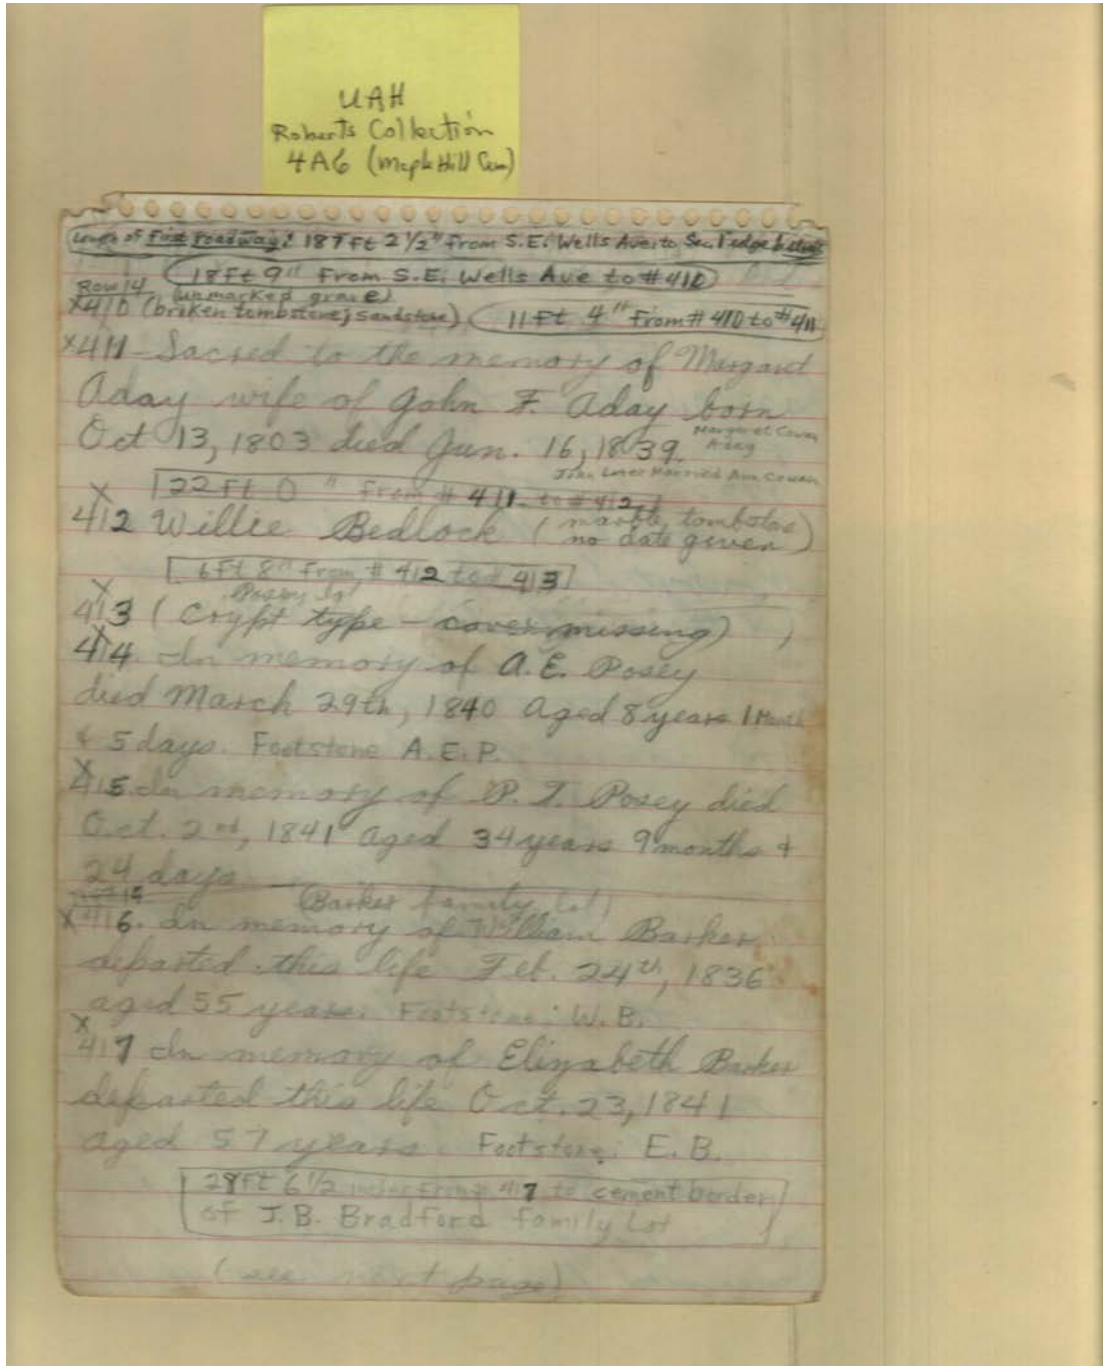 UAH
Roberts Collection
4A6 (Maple Hill Cem)
Length of First Roadway: 187 Ft 2 1/2" from S.E. Wells Ave to Sec. edge
18 Ft 9" From S.E. Wells Ave to #410
Row 14 (unmarked grave)
X410 (broken tombstone; sandstone) 11 Ft 4" From #410 to #411
X411 - Sacred to the memory of Margaret
Aday wife of John F. Aday born
Oct 13, 1803 died Jun. 16, 1839.
Margaret Cowan
Aday
John Later Married Ann Cowan
22 Ft 0" From #411 to #412
X
412 Willie Bedlock (marble tombstone
no date given)
6 Ft 8" From #412 to #413
X Posey lot
413 (Crypt type - cover missing)
X
414. In memory of A.E. Posey
died March 29th, 1840 Aged 8 years 1 Month
& 5 days. Footstone A.E.P.
X
415. In memory of P. T. Posey died
Oct. 2nd, 1841 aged 34 years 9 months &
24 days
(Barker family lot)
X416. In memory of William Barker
departed this life Feb. 24th, 1836
aged 55 years. Footstone: W.B.
X
417 In memory of Elizabeth Barker
departed this life Oct. 23, 1841
aged 57 years. Footstone: E. B.
28 Ft 6 1/2 inches from #417 to cement border
of J.B. Bradford family Lot
(see next page)